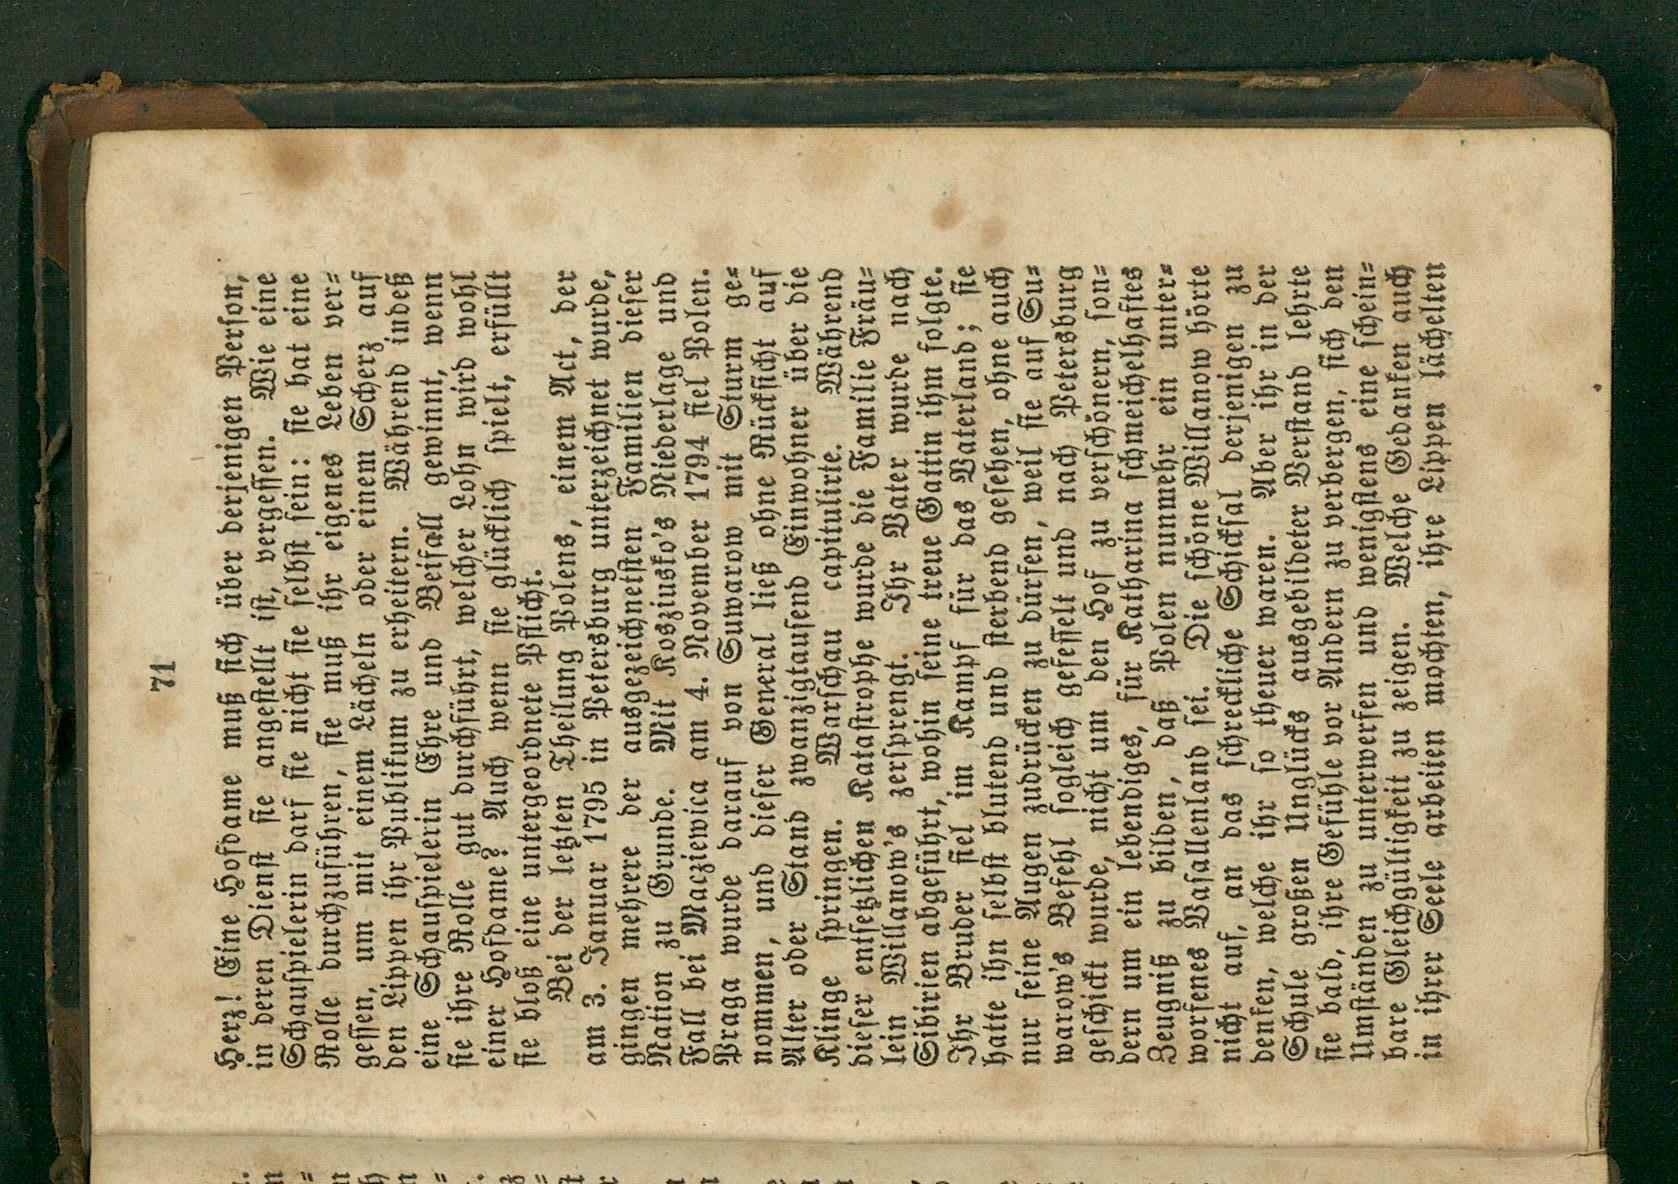 71
Herz! Eine Hofdame muß sich über derjenigen Person,
in deren Dienst sie angestellt ist, vergessen. Wie eine
Schauspielerin darf sie nicht sie selbst sein: sie hat eine
Rolle durchzuführen, sie muß ihr eigenes Leben ver-
gessen, um mit einem Lächeln oder einem Scherz auf
den Lippen ihr Publikum zu erheitern. Während indeß
eine Schauspielerin Ehre und Beifall gewinnt, wenn
sie ihre Rolle gut durchführt, welcher Lohn wird wohl
einer Hofdame? Auch wenn sie glücklich spielt, erfüllt
sie bloß eine untergeordnete Pflicht.
Bei der letzten Theilung Polens, einem Act, der
am 3. Januar 1795 in Petersburg unterzeichnet wurde,
gingen mehrere der ausgezeichnetsten Familien dieser
Nation zu Grunde. Mit Koszinsko's Niederlage und
Fall bei Maeziewica am 4. November 1794 fiel Polen.
Praga wurde darauf von Suwarow mit Sturm ge-
nommen, und dieser General ließ ohne Rücksicht auf
Alter oder Stand zwanzigtausend Einwohner über die
Klinge springen. Warschau capitulirte. Während
dieser entsetzlichen Katastrophe wurde die Familie Fräu-
lein Willanow's zersprengt. Ihr Vater wurde nach
Sibirien abgeführt, wohin seine treue Gattin ihm folgte.
Ihr Bruder fiel im Kampf für das Vaterland; sie
hatte ihn selbst blutend und sterbend gesehen, ohne auch
nur seine Augen zudrücken zu dürfen, weil sie auf Su-
warow's Befehl sogleich gefesselt und nach Petersburg
geschickt wurde, nicht um den Hof zu verschönern, son-
dern um ein lebendiges, für Katharina schmeichelhaftes
Zeugniß zu bilden, daß Polen nunmehr ein unter-
worfenes Vasallenland sei. Die schöne Willanow hörte
nicht auf, an das schreckliche Schicksal derjenigen zu
denken, welche ihr so theuer waren. Aber ihr in der
Schule großen Unglücks ausgebildeter Verstand lehrte
sie bald, ihre Gefühle vor Andern zu verbergen, sich den
Umständen zu unterwerfen und wenigstens eine schein-
bare Gleichgültigkeit zu zeigen. Welche Gedanken auch
in ihrer Seele arbeiten mochten, ihre Lippen lächelten